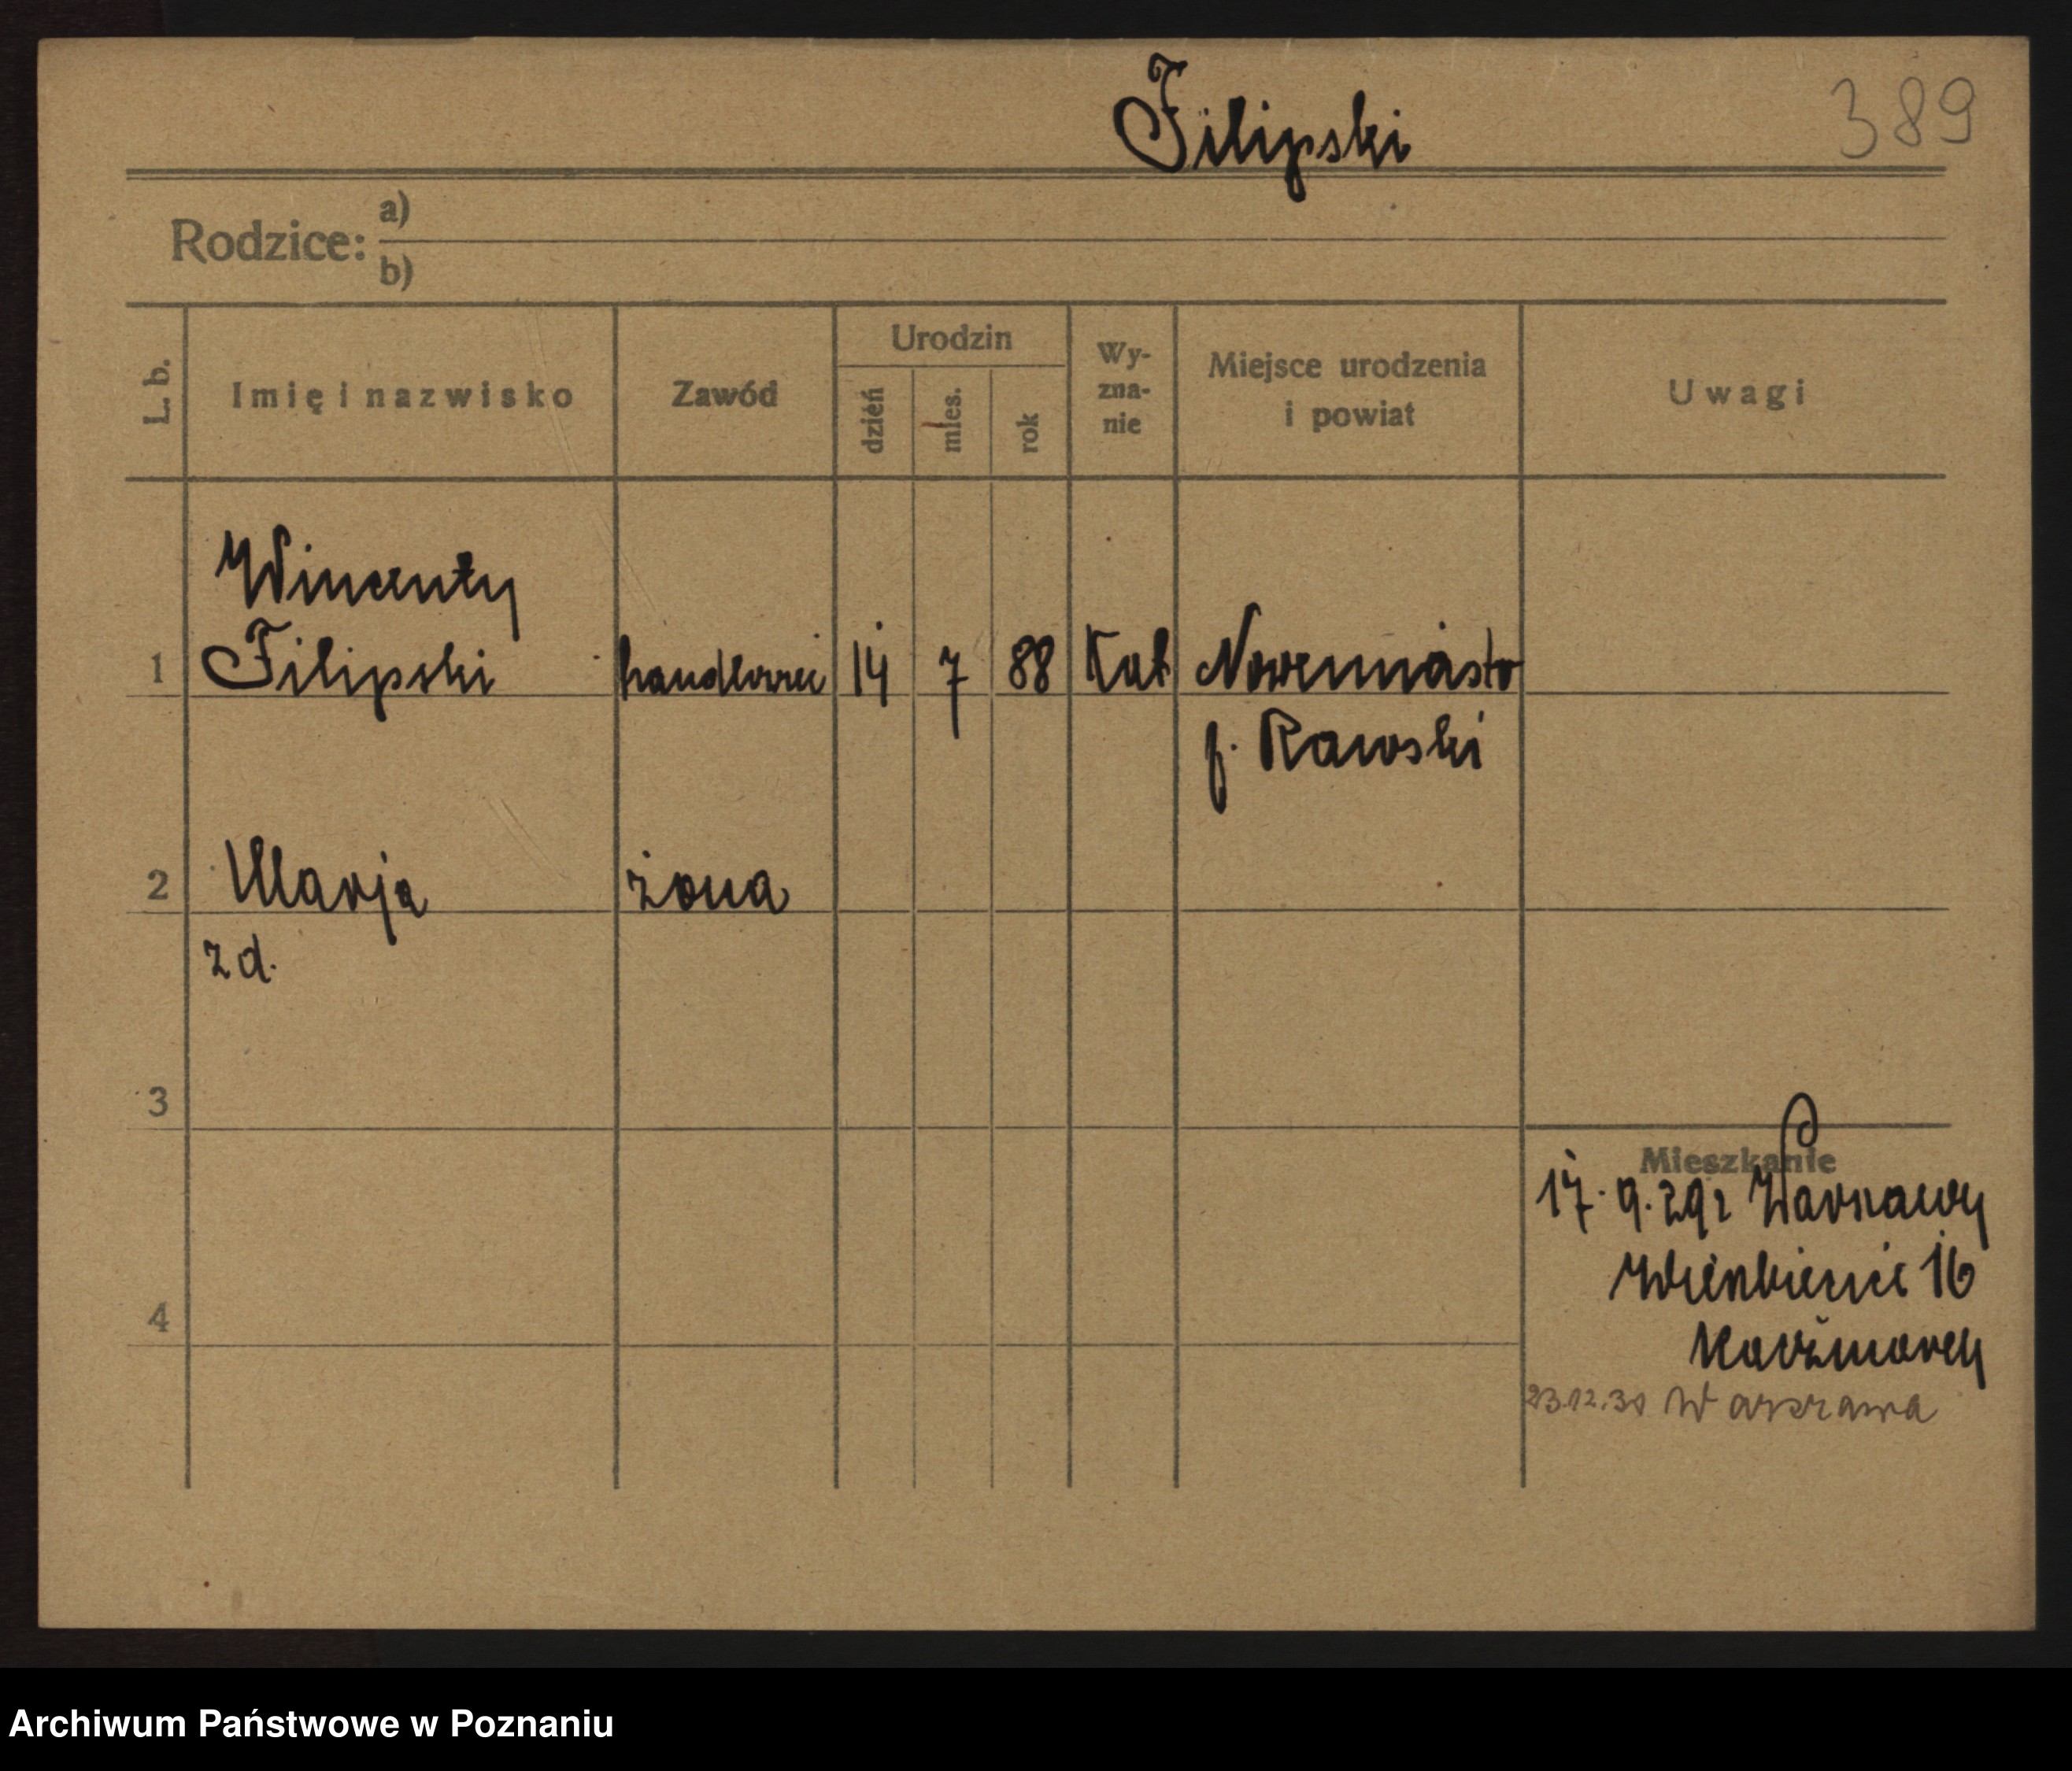 Filipski
389
Rodzice: a)
b)
L. b.
Imię i nazwisko
Zawód
Urodzin
dzień
mies.
rok
Wy-
zna-
nie
Miejsce urodzenia
i powiat
Uwagi
Wincenty
1 Filipski handlowiec 14 7 88 Kat Nowemiasto
p. Rawski
2 Marja żona
z d.
3
Mieszkanie
17. 9. 29 z Warszawy
16
4
Kaczmarek
23.12.30 Warszawa
Archiwum Państwowe w Poznaniu